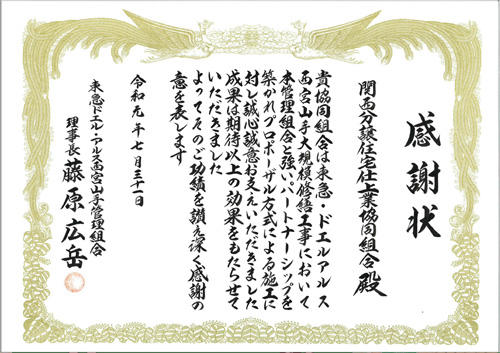 感謝状
関西分譲住宅仕上業協同組合 殿
貴協同組合は東急・ドエルアルス
西宮山手大規模修繕工事において
本管理組合と強いパートナーシップを
築かれプロポーザル方式による施工に
対し誠心誠意お支えいただきました
成果は期待以上の効果をもたらせて
いただきました
よってそのご功績を讃え深く感謝の
意を表します
令和元年七月三一日
東急ドエル・アルス西宮山手管理組合
理事長 藤原広岳